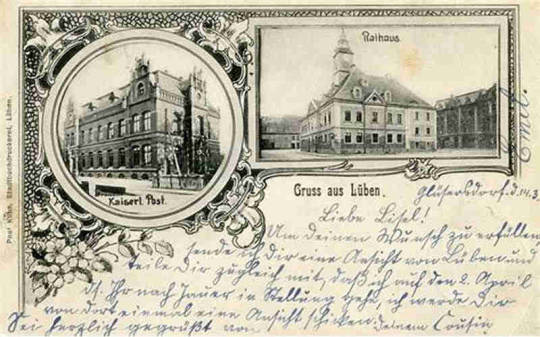 Rathaus.
Kaiserl. Post.
Gruss aus Lüben.
Stadtbuchdruckerei, Lüben.
Liebe Lisel!
Um deinen Wunsch zu erfüllen,
sende ich dir eine Ansicht von Lüben und
teile Dir zugleich mit, daß ich auf den 2. April
ds. Jhr nach Jauer in Stellung gehe, ich werde Dir
von dort einmal eine Ansicht schicken.
Sei herzlich gegrüßt von deinem Cousin
Emil.